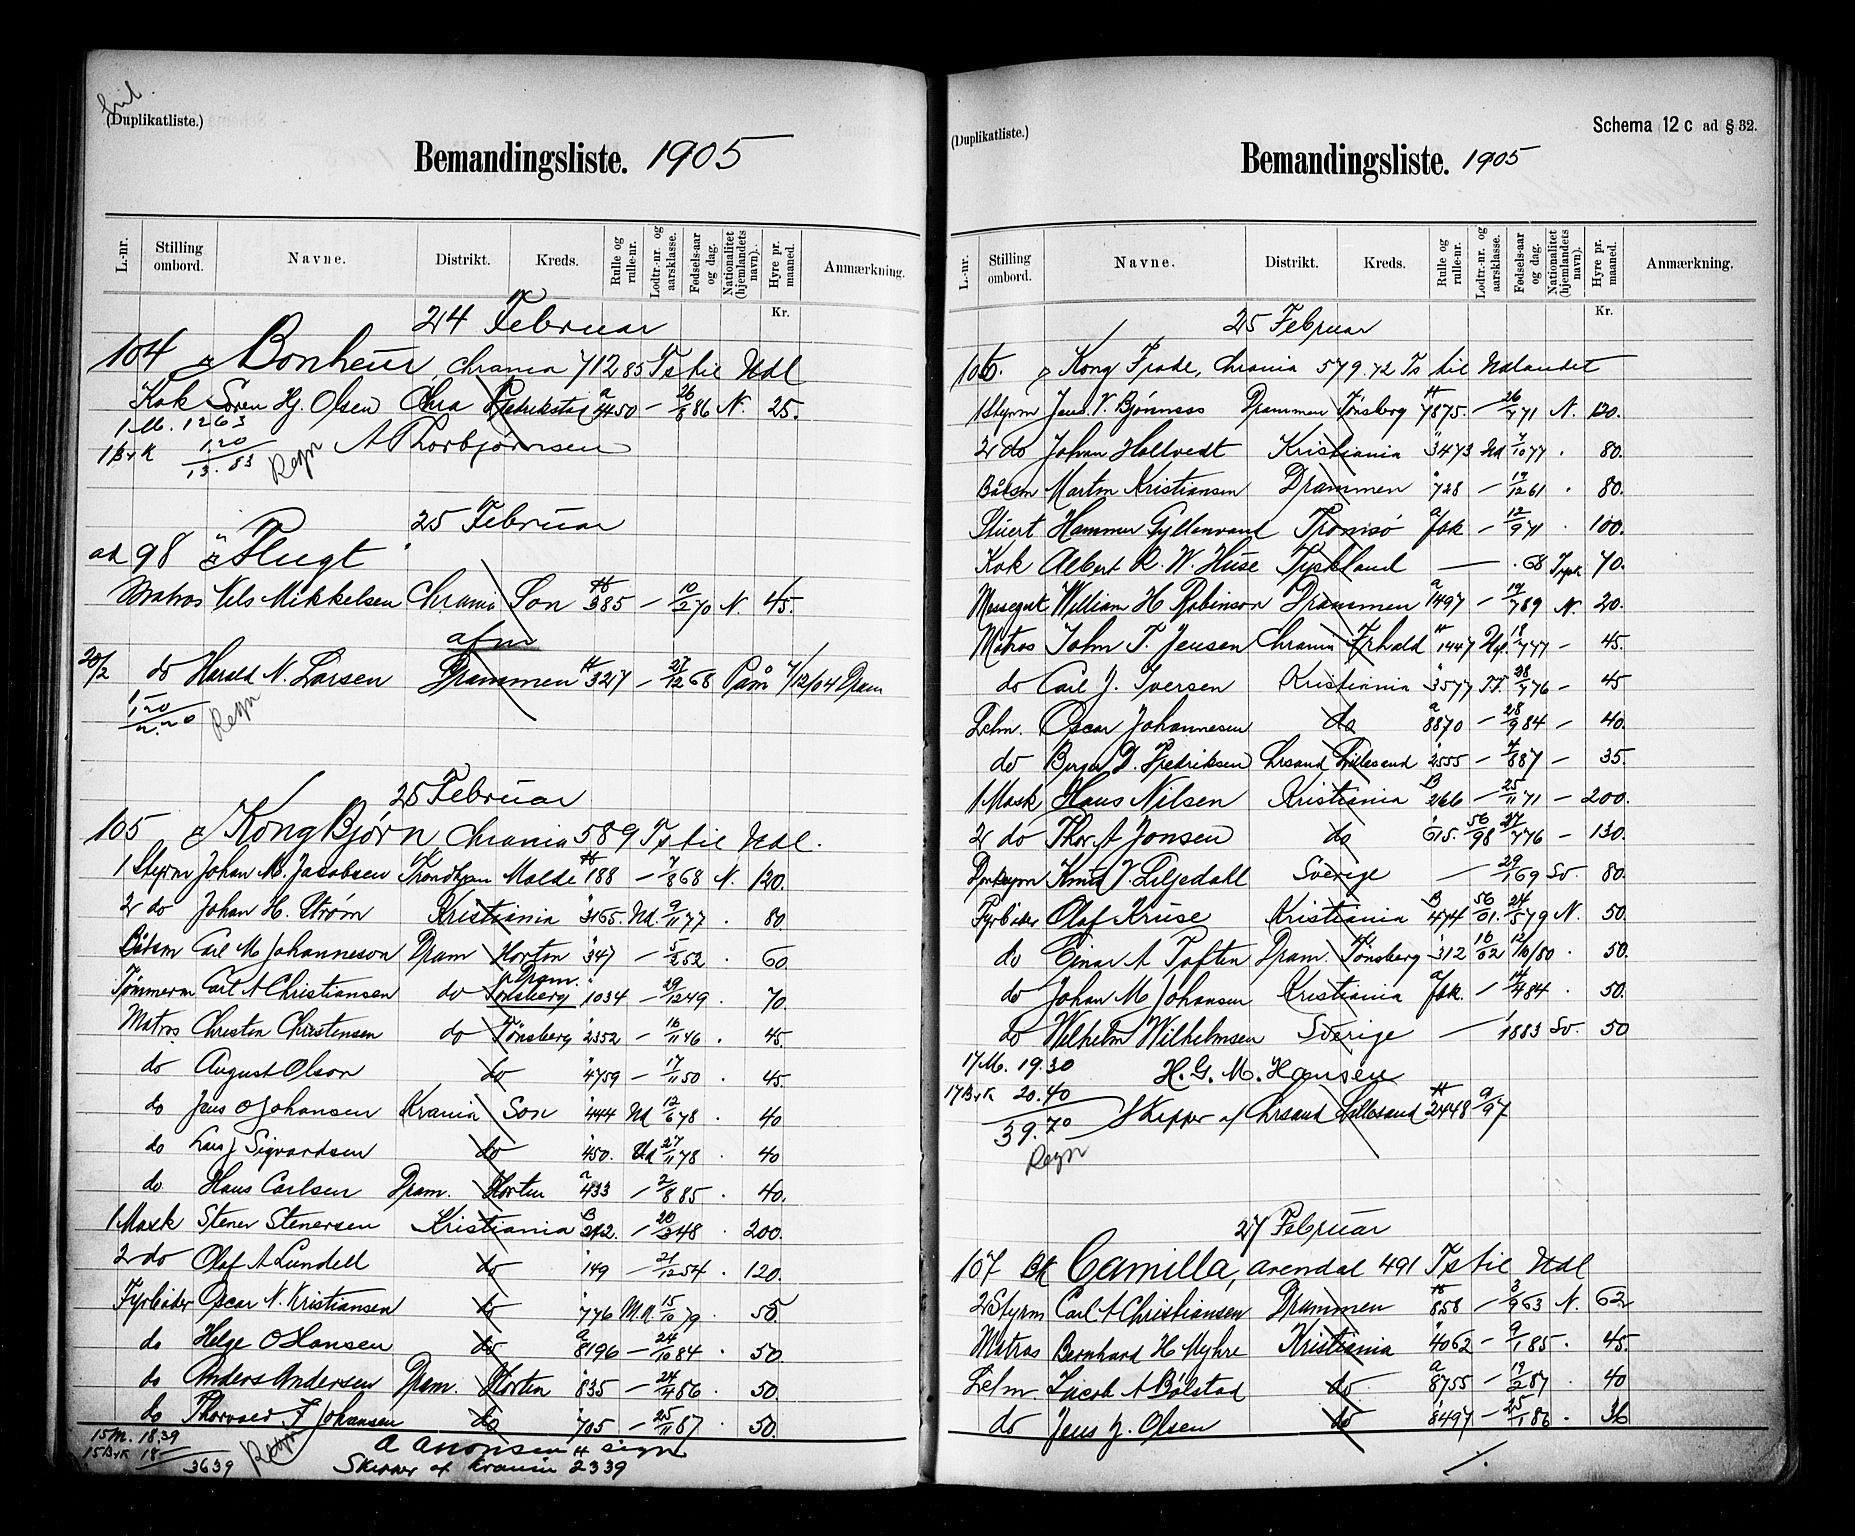 (Duplikatliste.)
Bemandingsliste. 1905
L.-nr. Stilling ombord. Navne. Distrikt. Kreds. Rulle og rulle-nr. Lodtr.-nr. og aarsklasse. Fødsels-aar og dag. Nationalitet (hjemlandets navn). Hyre pr. maaned. Anmærkning.
Kr.
24 Februar
104 Bonheur, Chrania 71285 Ts til Udl
Kok Søren Hj. Olsen Chra Fredrikstad a 4450 — 26/8 86 N. 25.
1 M. 1263
1 B&K 1.20
13.83 Regn A Thorbjørnsen
25 Februar
ad 98 Flugt
Matros Nels Mikkelsen Chrania Son 385 — 10/2 70 N. 45.
afm
20/2 do Harald N. Larsen Drammen 3217 — 27/12 68 Paam 7/12/04 Dram
Regn
25 Februar
105 Kong Bjørn Chrania 589 Ts til Udl.
1 Styrm Johan M. Jacobsen Trondhjem Molde 188 — 7/8 68 N. 120.
2 do Johan H. Strøm Kristiania 3165. Ud 9/11 77 . 80
Båtsm Carl M Johannesson Dram Horten 347 — 5/2 52 . 60.
Tømmerm Carl A Christiansen do Tønsberg Dram. 1034 — 29/12 49 . 70.
Matros Christen Christensen do Tønsberg 2352 — 16/11 46 . 45.
do August Olson do 4759 — 17/11 50 . 45.
do Jens O Johansen Krania Son 444 Ud 12/6 78 . 40
do Lars J Sigvardsen do 450. Ud 27/11 78 . 40
do Hans Carlsen Dram. Horten a 433 — 2/8 85 . 40.
1 Mask Stener Stenersen Kristiania B 242. — 20/3 48 . 200.
2 do Olaf A Lundell do 149 — 21/12 54 . 120.
Fyrbøder Oscar N. Kristiansen do 776 M.N. 15/10 79 . 50
do Helge O Hansen do a 8196 — 24/10 84 . 50.
do Anders Andersen Dram. Horten 835 — 24/4 86 . 50
do Thorvald F Johansen do 705 — 25/11 87 . 50.
15 M. 1839
15 B&K 18—
3639 Regn A Aronsen sign
Skipper af Krania 2339
(Duplikatliste.)
Schema 12 c ad § 32.
Bemandingsliste. 1905
L.-nr. Stilling ombord. Navne. Distrikt. Kreds. Rulle og rulle-nr. Lodtr.-nr. og aarsklasse. Fødsels-aar og dag. Nationalitet (hjemlandets navn). Hyre pr. maaned. Anmærkning.
Kr.
25 Februar
106. Kong Frode, Chrania 579.72 Ts til Udlandet
1 Styrm Jens. V. Bjønness Drammen Tønsberg 7875. — 26/7 71 N. 120.
2 do Johan Holtvedt Kristiania 3473 Ud 7/10 77 . 80.
Båtsm Martin Kristiansen Drammen 728 — 19/12 61 . 80.
Stuert Hammer Gyldenvand Tromsø a Fok — 12/9 71 . 100.
Kok Albert R. W. Huse Tyskland — . 68 Tysk 70.
Messegut William H Robinson Drammen a 1497 — 19/7 89 N. 20.
Matros John T. Jensen Chrania Frhald 1447 18/7 77 — 45.
do Carl J. Iversen Kristiania 3577 T.T. 28/7 76 — 45
Lelm. Oscar Johannesen do a 8870 — 28/9 84 — 40.
do Birger D. Fredriksen Chrsand Lillesand 2555 — 7/8 87 — 35.
1 Mask Hans Nilsen Kristiania B 266 — 25/11 71 — 200.
2 do Thor A Jonsen do 615. 56/98 27/7 76 — 130.
Knud V Liljedahl Sverige — 29/1 69 Sv. 80.
Fyrbøder Olaf Kruse Kristiania B 474 56/01. 24/5 79 N. 50.
do Einar A Toften Dram. Tønsberg 312 16/02 12/10/80 . 50.
do Johan M Johansen Kristiania a Fok. — 14/4 84 . 50.
do Wilhelm Wilhelmsen Sverige — 1883 Sv. 50
17 M. 19.30 H. G. M. Hansen
17 B&K 20.40
39.70 Skipper af Chrsand Lillesand 2448 9/97
Regn
27 Februar
107 Bk Camilla, Arendal 491 Ts til Udl
2 Styrm Carl A Christiansen Drammen 858 — 3/9 63 N. 62
Matros Bernhard H Myhre Kristiania 4062 — 9/1 85 . 45.
Lelm. Jacob A Bolstad do a 8755 — 19/2 87 . 40
do Jens J. Olsen do 8497 — 25/1 86 . 36